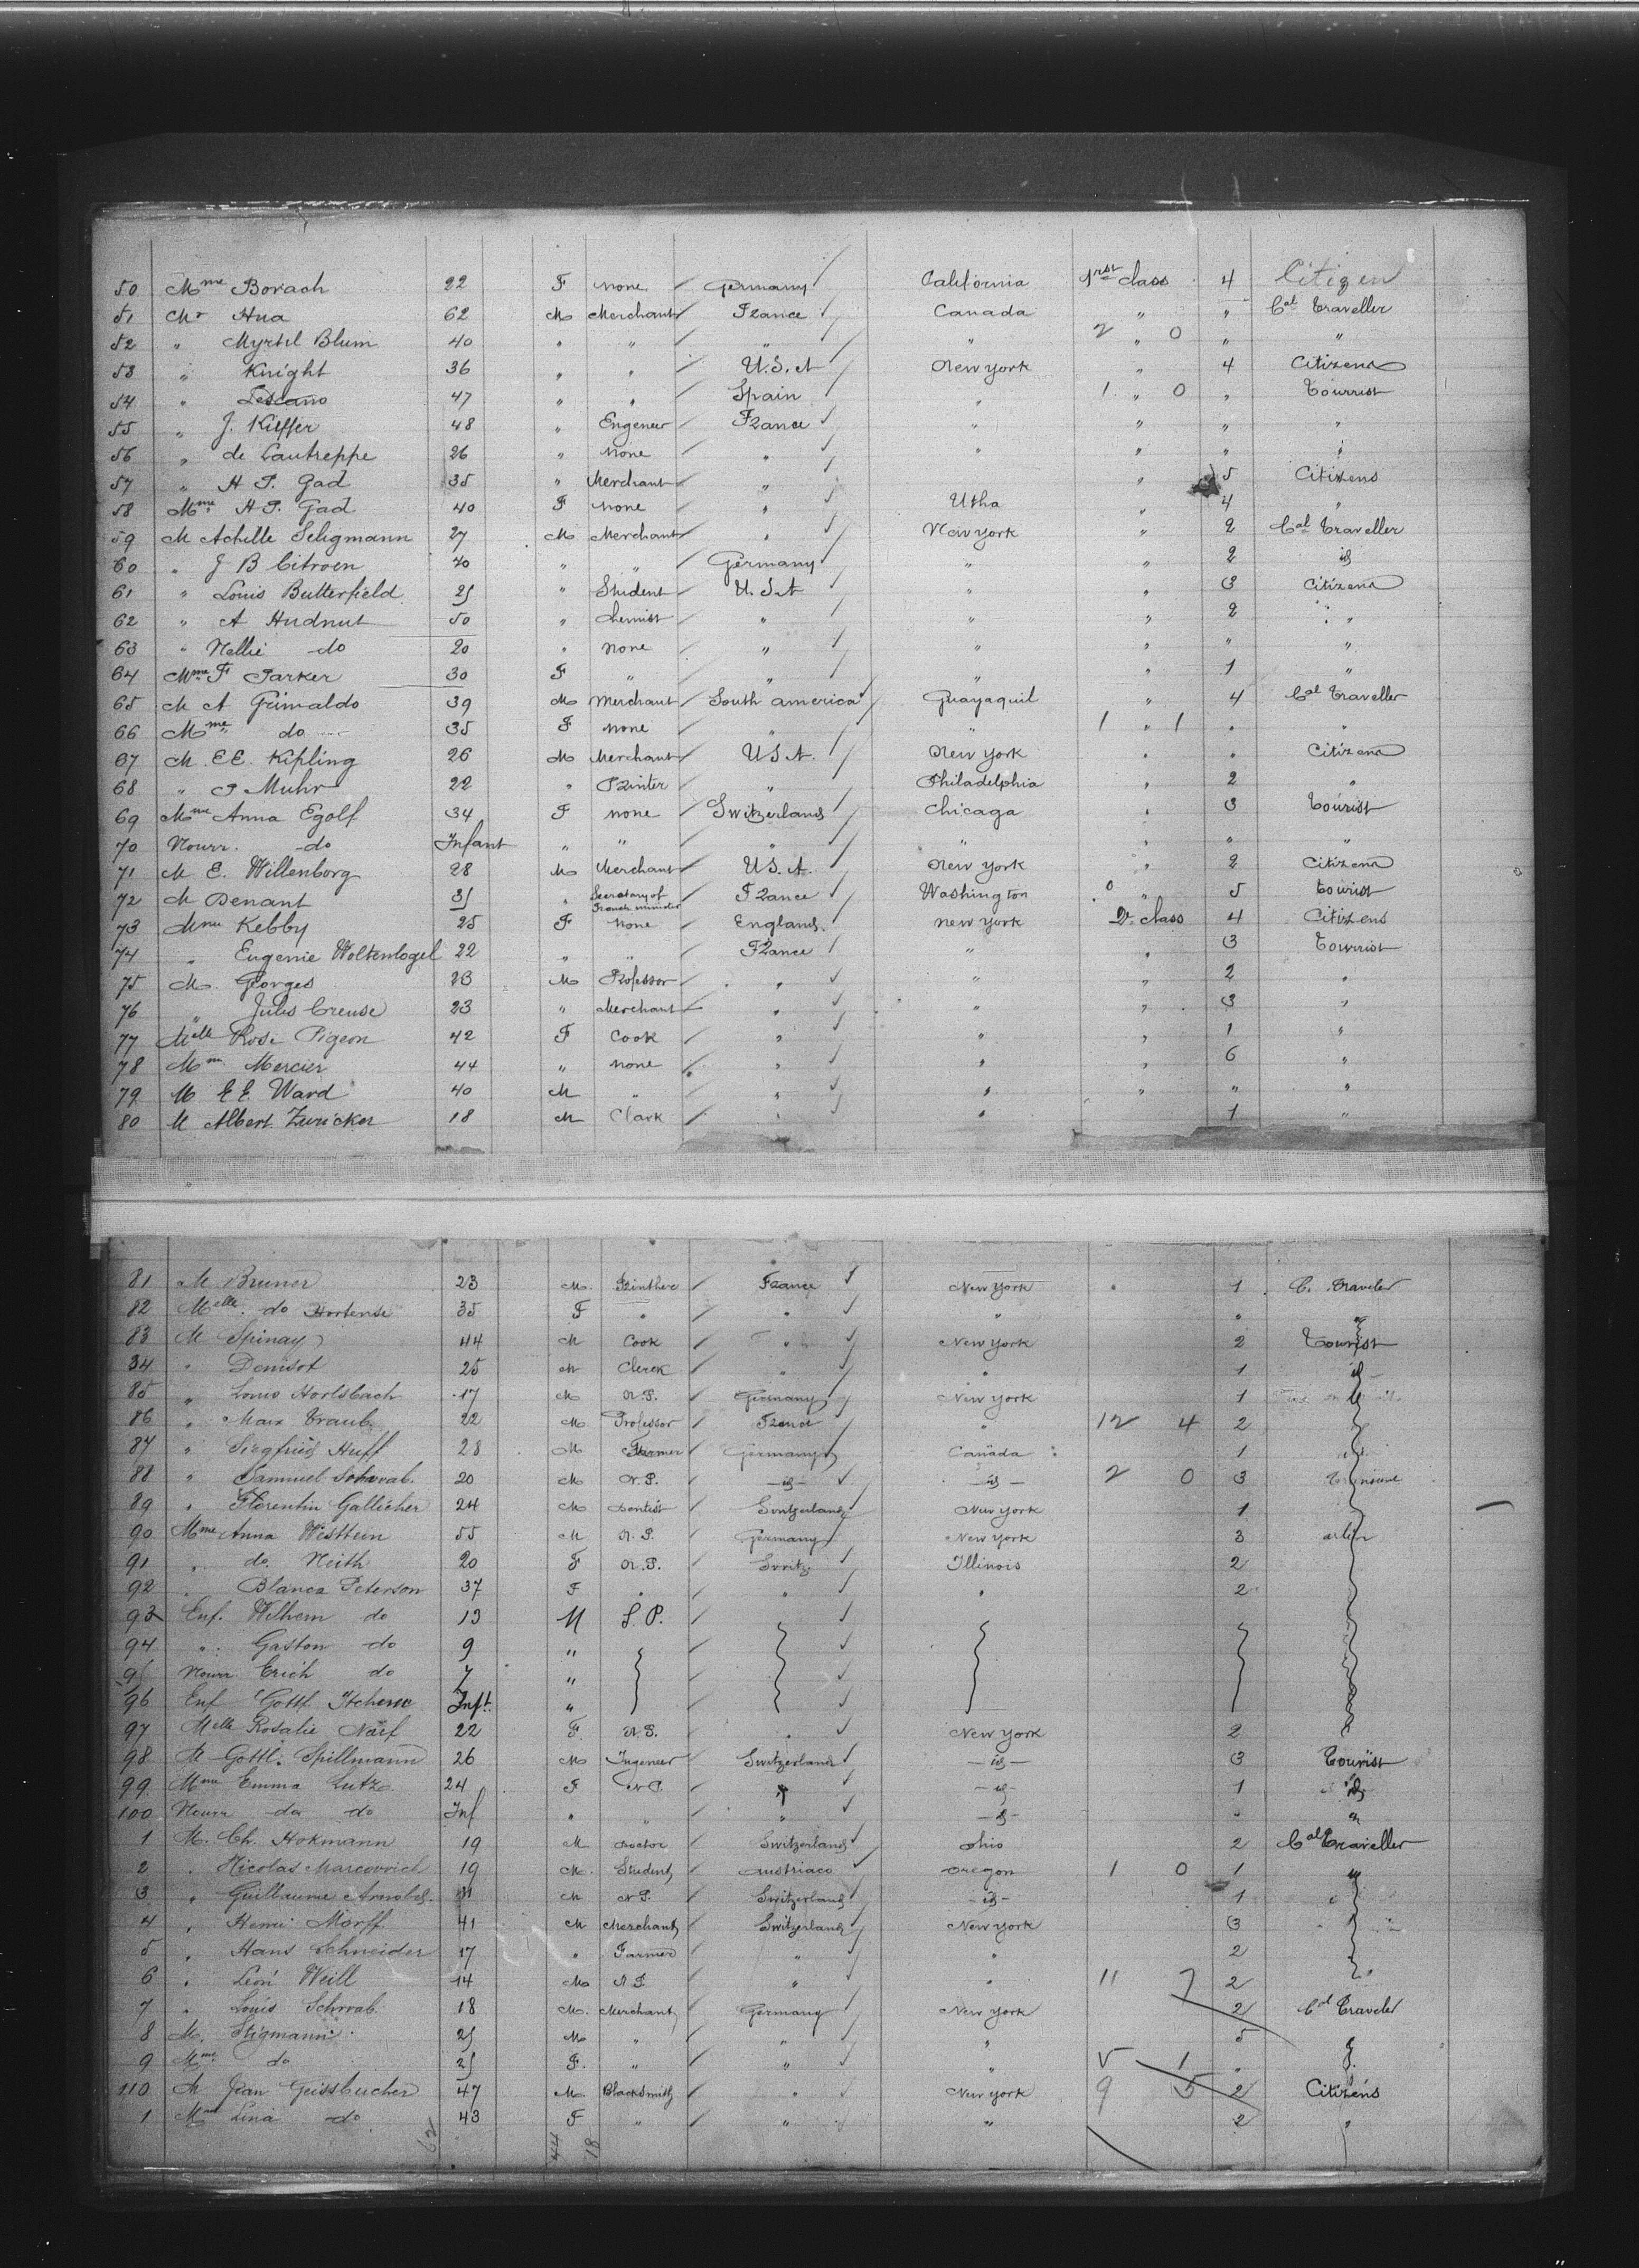 50 Mme Borach 22 F none Germany California 1rst class 4 Citizen
51 Mr Hua 62 M Merchant France Canada " " Cal Traveller
52 " Myrtil Blum 40 " " " " 2 " 0 " "
53 " Knight 36 " " U.S.A New york " 4 Citizens
54 " Lescano 47 " " Spain " 1 " 0 " Tourist
55 " J. Kieffer 48 " Engeneer France " " " "
56 " de Lautreppe 26 " none " " " " "
57 " H P. Gad 35 " Merchant " " 5 Citizens
58 Mme H P. Gad 40 F none " Utha " 4 "
59 M Achille Seligmann 27 M Merchant " New york " 2 Cal Traveller
60 " J B Citroen 40 " " Germany " " 2 id
61 " Louis Butterfield 25 " Student U.S.A " " 3 Citizens
62 " A Hudnut 50 " chemist " " " 2 " "
63 " Nellie do 20 " none " " " " "
64 Mme F Parker 30 F " " " " 1 "
65 M A Grimaldo 39 M Merchant South america Guayaquil " 4 Cal Traveller
66 Mme do 35 F none " " 1 " 1 " "
67 M E E. Kipling 26 M Merchant U.S.A. New york " " Citizens
68 " P Muhr 22 " Printer " Philadelphia " 2 "
69 Mme Anna Egolf 34 F none Switzerland Chicaga " 3 Tourist
70 Nourr. do Infant " " " " " " "
71 M E. Willenborg 28 M Merchant U.S.A. New york " 2 Citizens
72 M Denant 35 " Secretary of French minister France Washington 0 " 5 tourist
73 Mme Kebby 25 F none England New york 2d class 4 Citizens
74 " Eugenie Woltenlogel 22 " " France " " 3 Tourrist
75 M. Georges 23 M Professor " " " 2 "
76 " Jules Creuse 23 " Merchant " " " 3 "
77 Melle Rose Pigeon 42 F Cook " " " 1 "
78 Mme Mercier 44 " none " " " 6 "
79 M E E. Ward 40 M " " " " " "
80 M Albert Zwicker 18 M Clark " " 1 "
81 M. Bruner 23 M. France New York " 1 C. Traveler
82 Melle do Hortense 35 F " " " " "
83 M Spinay 44 M Cook " New York 2 Tourist
84 " Denisot 25 M Clerck " " 1 id
85 " Louis Horlsbach 17 M N.P. Germany New York 1
86 " Max Traub. 22 M Professor France " 12 4 2
87 " Siegfried Huff 28 M Farmer Germany Canada 1
88 " Samuel Schwab. 20 M N.P. id id 2 0 3
89 " Florentin Gallicher 24 M Dentist Switzerland New York 1
90 Mme Anna Westtein 55 M N.P. Germany New York 3
91 " do Neith 20 F N.P. Switz Illinois 2
92 " Blanca Peterson 37 F " " " 2
93 Enf. Wilhem do 13 M S.P.
94 " Gaston do 9 "
95 Nourr Erich do 7 "
96 Enf Gottl. Inft. "
97 Melle Rosalie Naef 22 F. N.P. " New York 2
98 M Gottl. Spillmann 26 M Ingeneer Switzerland id 3 Tourist
99 Mme Emma Lutz 24 F N.P. " id 1 id
100 Nourr do do Inf " " " id " "
1 M. Ch. Hokmann 19 M Doctor Switzerland Ohio 2 Cal Traveller
2 " Nicolas Marcovvich 19 M. Student Austriaco Oregon 1 0 1 "
3 " Guillaume Arnold 31 M N.P. Switzerland id 1
4 " Henri Morff 41 M Merchant Switzerland New York 3
5 " Hans Schneider 17 " Farmer " " 2
6 " Leon Weill 14 M N.P. " " 11 7 2
7 " Louis Schwab. 18 M. Merchant Germany New York 2 Cal Traveler
8 M. Stigmann 25 M " " " 5
9 Mme do 25 F. " " " 5 1 "
110 M Jean Geissbucher 47 M Blacksmith " New York 9 5 2 Citizens
1 Mme Lina do 43 F " " " 2 "
62 44 18